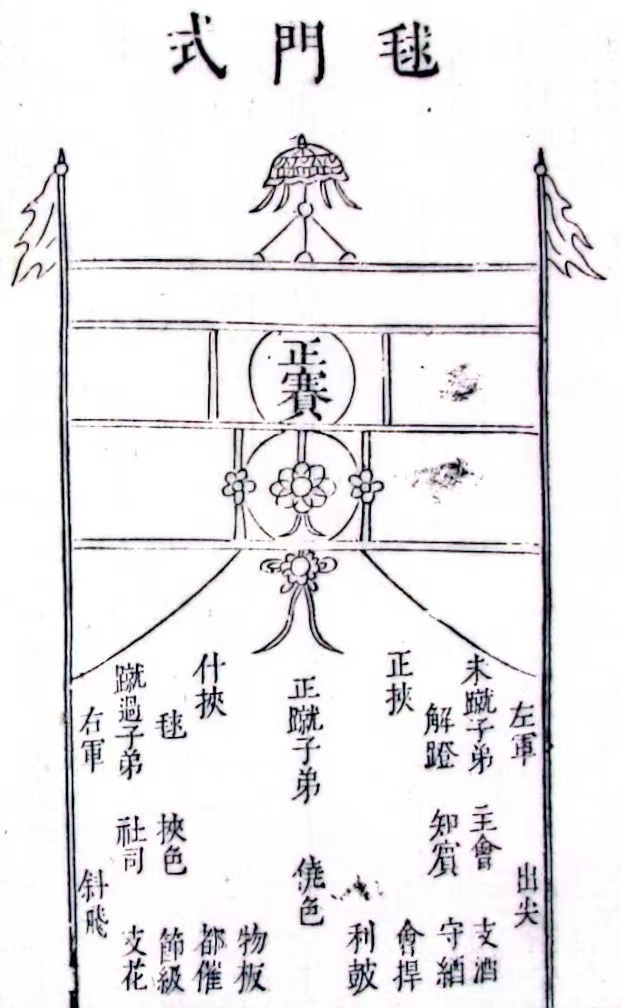 毬門式
正賽
左軍
出尖
未蹴子弟
主會
支酒
解蹬
知賓
守網
正挾
會捍
利鼓
正蹴子弟
僥色
物板
什挾
都催
毬
挾色
節級
蹴過子弟
社司
支花
右軍
斜飛